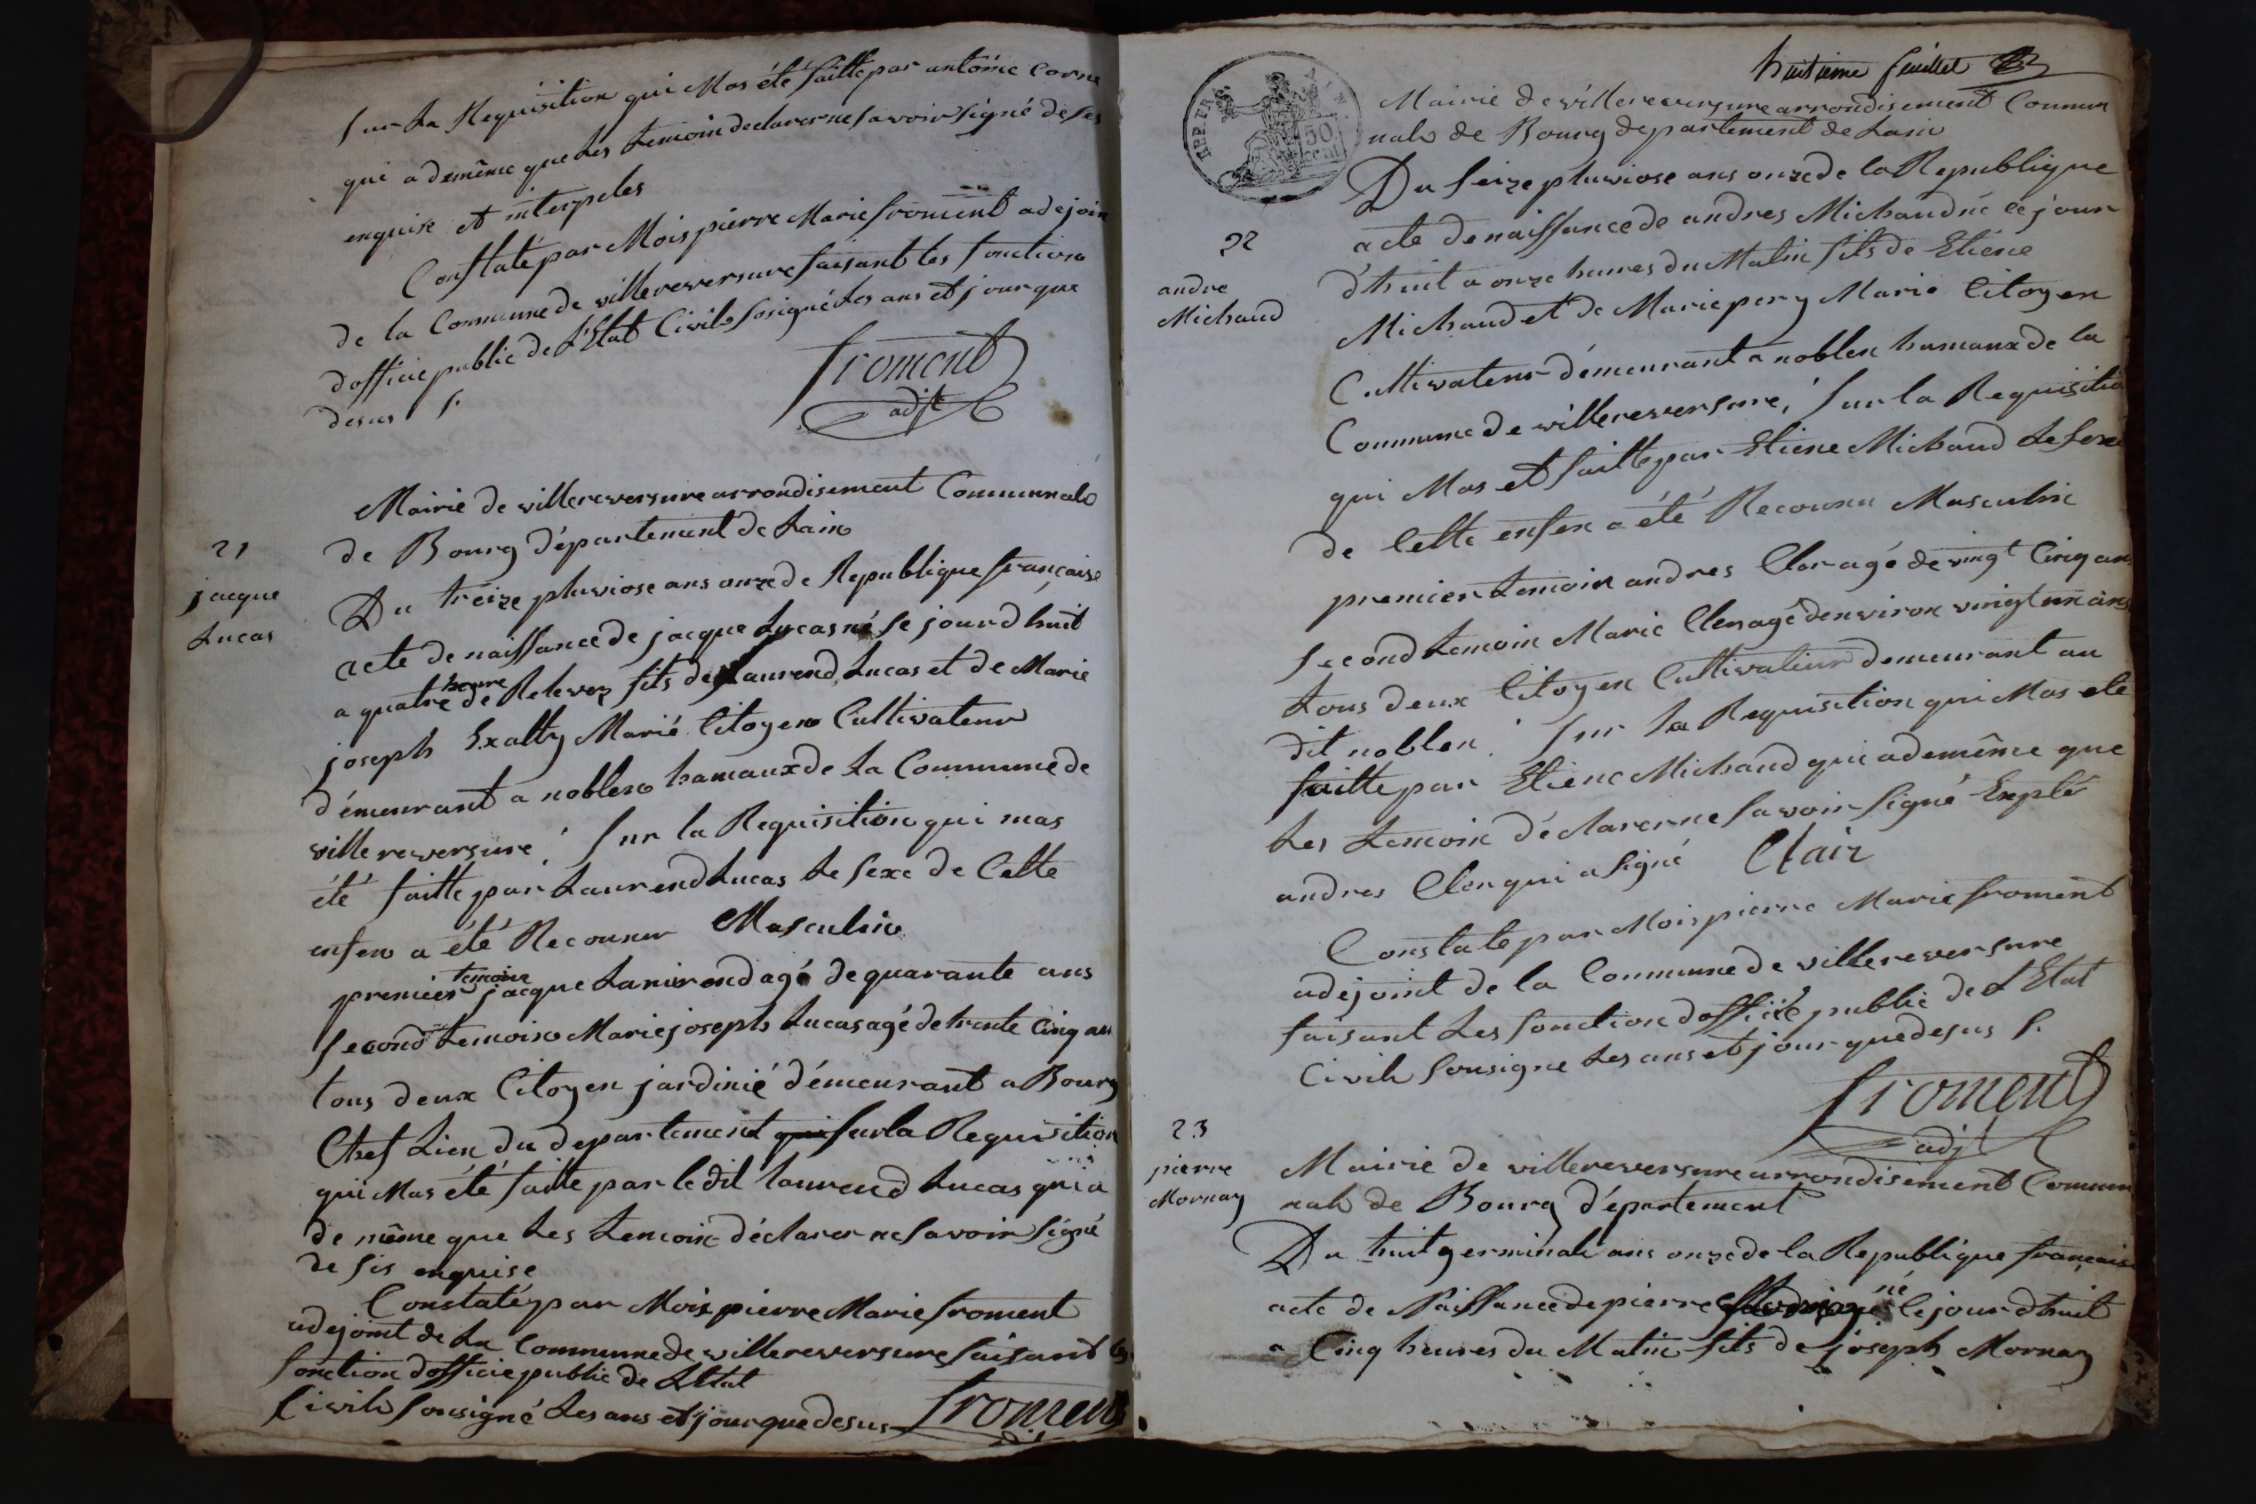 Sur La Requisition qui Mas été faitte par antoine Corne
qui a demême que Les temoin declarer ne savoir signé de ses
enquise et interpeles
Constaté par Mois pierre Marie froment adejoin
de la Commune de villereversure faisant les fonction
dofficie public de L'Etat Civile Sousigné Les ans et jour que
desus f.
froment
adjt
21
jacque
Lucas
Mairie de villereversure arrondisement Communale
de Bourg département de Lain
Du treize pluviose ans onze de Republique française
acte de naissance de jacque Lucas né se jourdhuit
a quatre heure de Relevez fils de Laurend Lucas et de Marie
joseph Exaltty Marié Citoyen Cultivateur
démeurant a noblen hamaux de La Commune de
villereversure. Sur la Requisition qui mas
été faitte par Laurend Lucas Le sexe de Cette
enfen a été Reconnu Masculin
premier temoin jacque agé de quarante ans
second temoin Marie joseph Lucas agé de trente Cinq an
tous deux Citoyen jardinié démeurant a Bourg
Chef Lieu du departement qui sur la Requisition
qui Mas été faitte par le dit laurend Lucas qui a
de même que Les Temoin déclarer ne savoir signé
de sis enquise
Constaté par Mois pierre Marie froment
adejoint de La Commune de villereversure faisant les
fonction dofficie public de LEtat
Civile Sousigné Les ans et jour que desus froment
huitieme feuillet
REP. FRA.
50
cent.
Mairie de villereversure arrondisement Commun
nale de Bourg departement de Lain
Du seize pluviose ans onze de la Republique
22
andre
Michaud
acte de naissance de andres Michaud né ce jour
d'huit a onze heures du Matin fils de Etiene
Michaud et de Marie pery Marié Citoyen
Cultivateur démeurant a noblen hamaux de la
Commune de villereversure, Sur la Requisitio
qui Mas et faitte par Etiene Michaud Le sexe
de Cette enfen a été Reconnu Masculin
premier temoin andres Cler agé de vingt Cinq ans
second temoin Marie Cler agé denviron vingt un ans
tous deux Citoyen Cultivateur demeurant au
dit noblen. Sur La Requisition qui Mas ete
faitte par Etiene Michaud qui a demême que
Les Temoin déclarer ne savoir signé Explé
andres Cler qui a signé Clair
Constate par Mois pierre Marie froment
adejoint de la Commune de villereversure
faisant Les fonction dofficié public de L'Etat
Civile Sousigne Les ans et jour que desus f.
froment
adjt
23
pierre
Mornay
Mairie de villereversure arrondisement Commun
nale de Bourg département
Du huit germinale ans onze de la Republique française
acte de Naissance de pierre né le jourdhuit
a Cinq heures du Matin fils de joseph Mornay